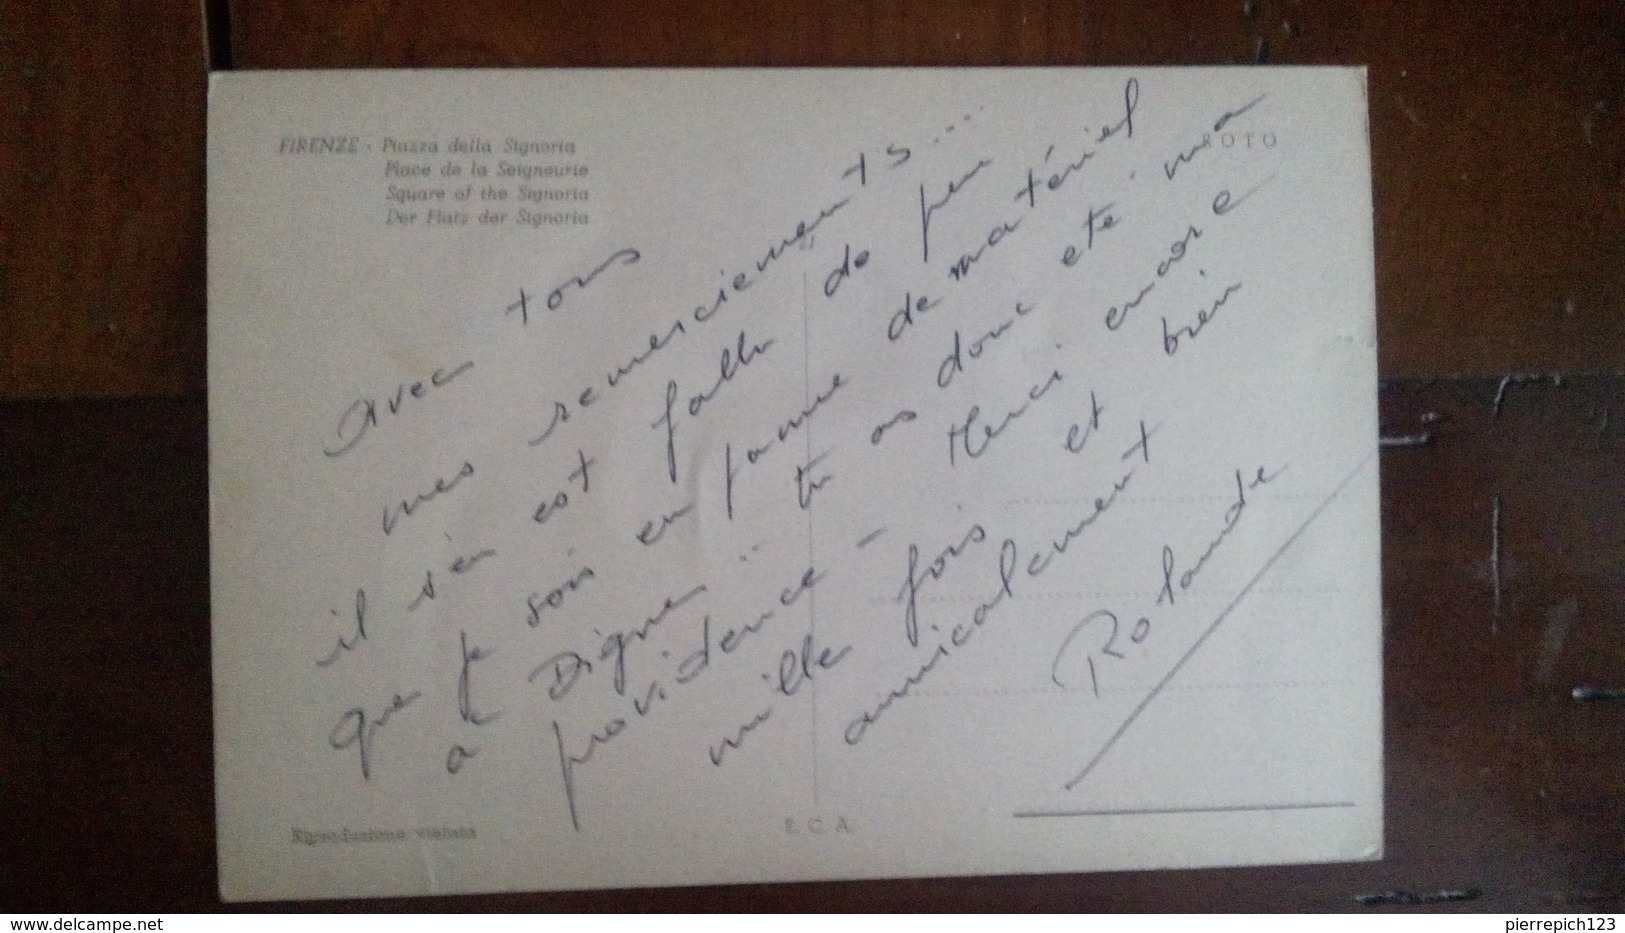 FIRENZE - Piazza della Signoria
Place de la Seigneurie
Square of the Signoria
Der Platz der Signoria
ROTO
Avec tous
mes remerciements...
il s'en est fallu de peu
que je sois en panne de matériel
à Digne.. tu as donc été ma
providence - Merci encore
mille fois et bien
amicalement
Rolande
Riproduzione vietata
E. C. A.
delcampe.net
pierrepich123